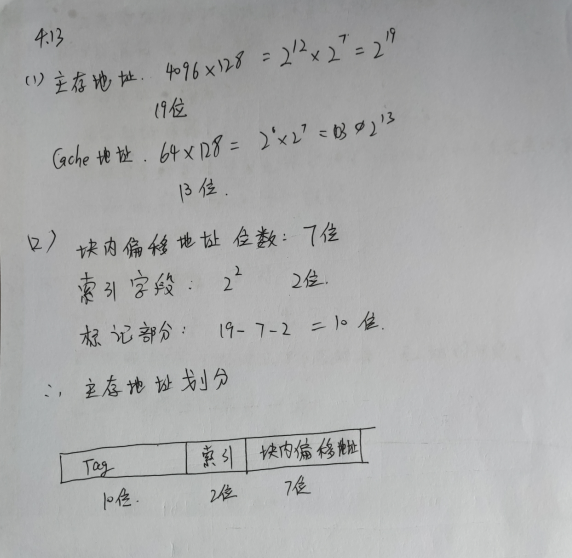 4.13
(1) 主存地址. 4096×128 = 2^12 × 2^7 = 2^19
19位
Cache 地址. 64×128 = 2^6 × 2^7 = 2^13
13位.
(2) 块内偏移地址位数: 7位
索引字段: 2^2 2位.
标记部分: 19-7-2 = 10位.
∴ 主存地址划分
Tag 索引 块内偏移地址
10位. 2位 7位